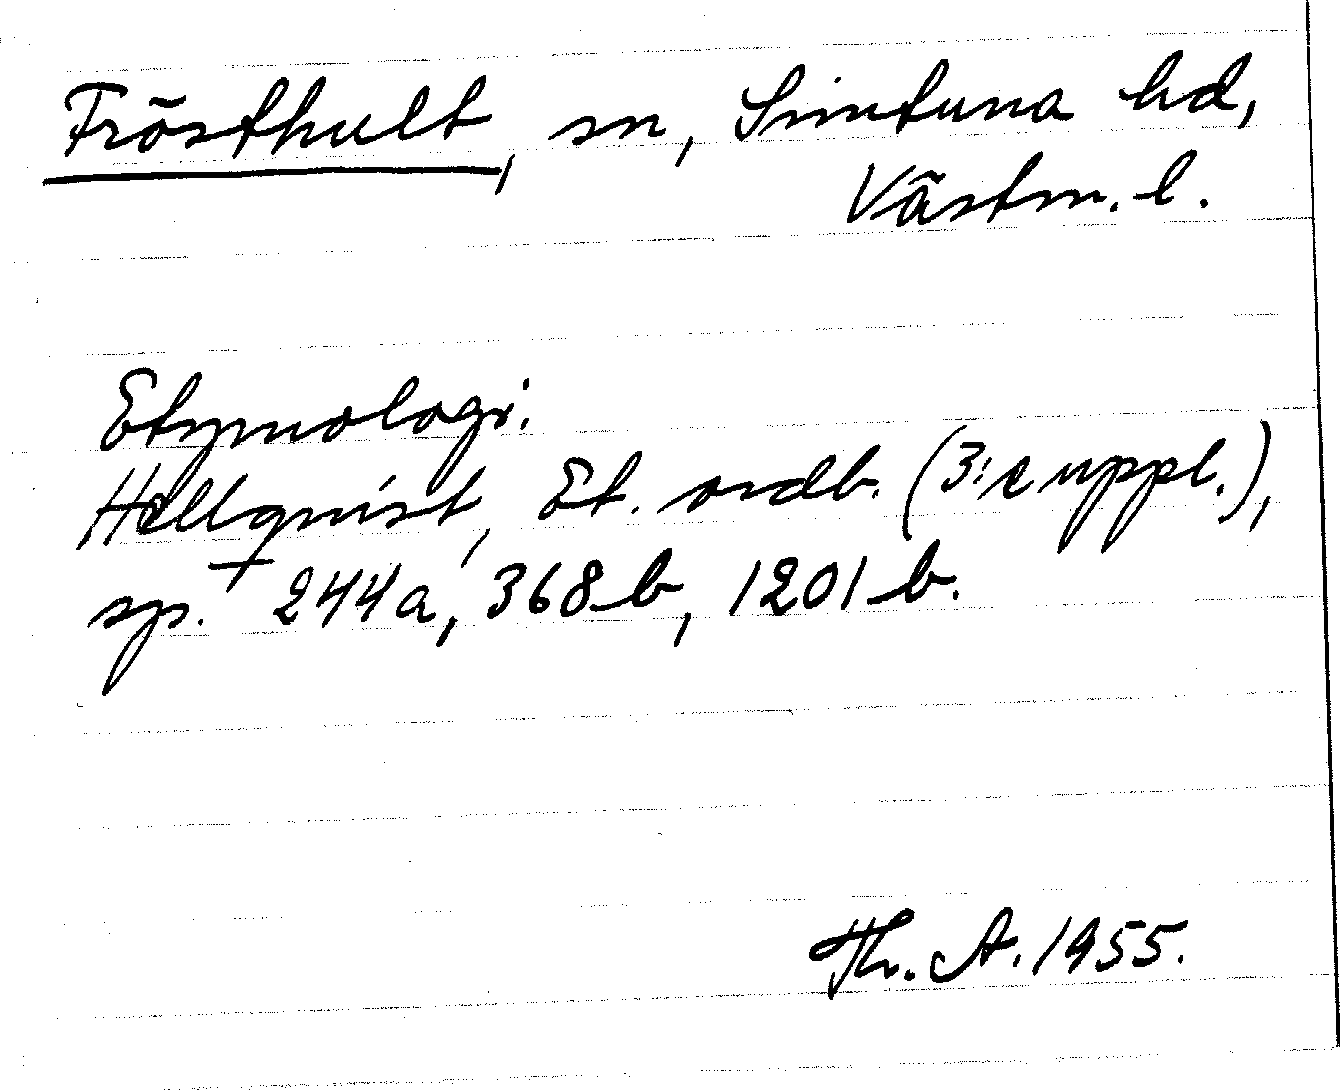 Frösthult, sn, Simtuna hd,
Västm. l.
Etymologi.
Hellquist, Et. ordb. (3:e uppl.),
sp. 244a, 368b, 1201b.
Th. A. 1955.